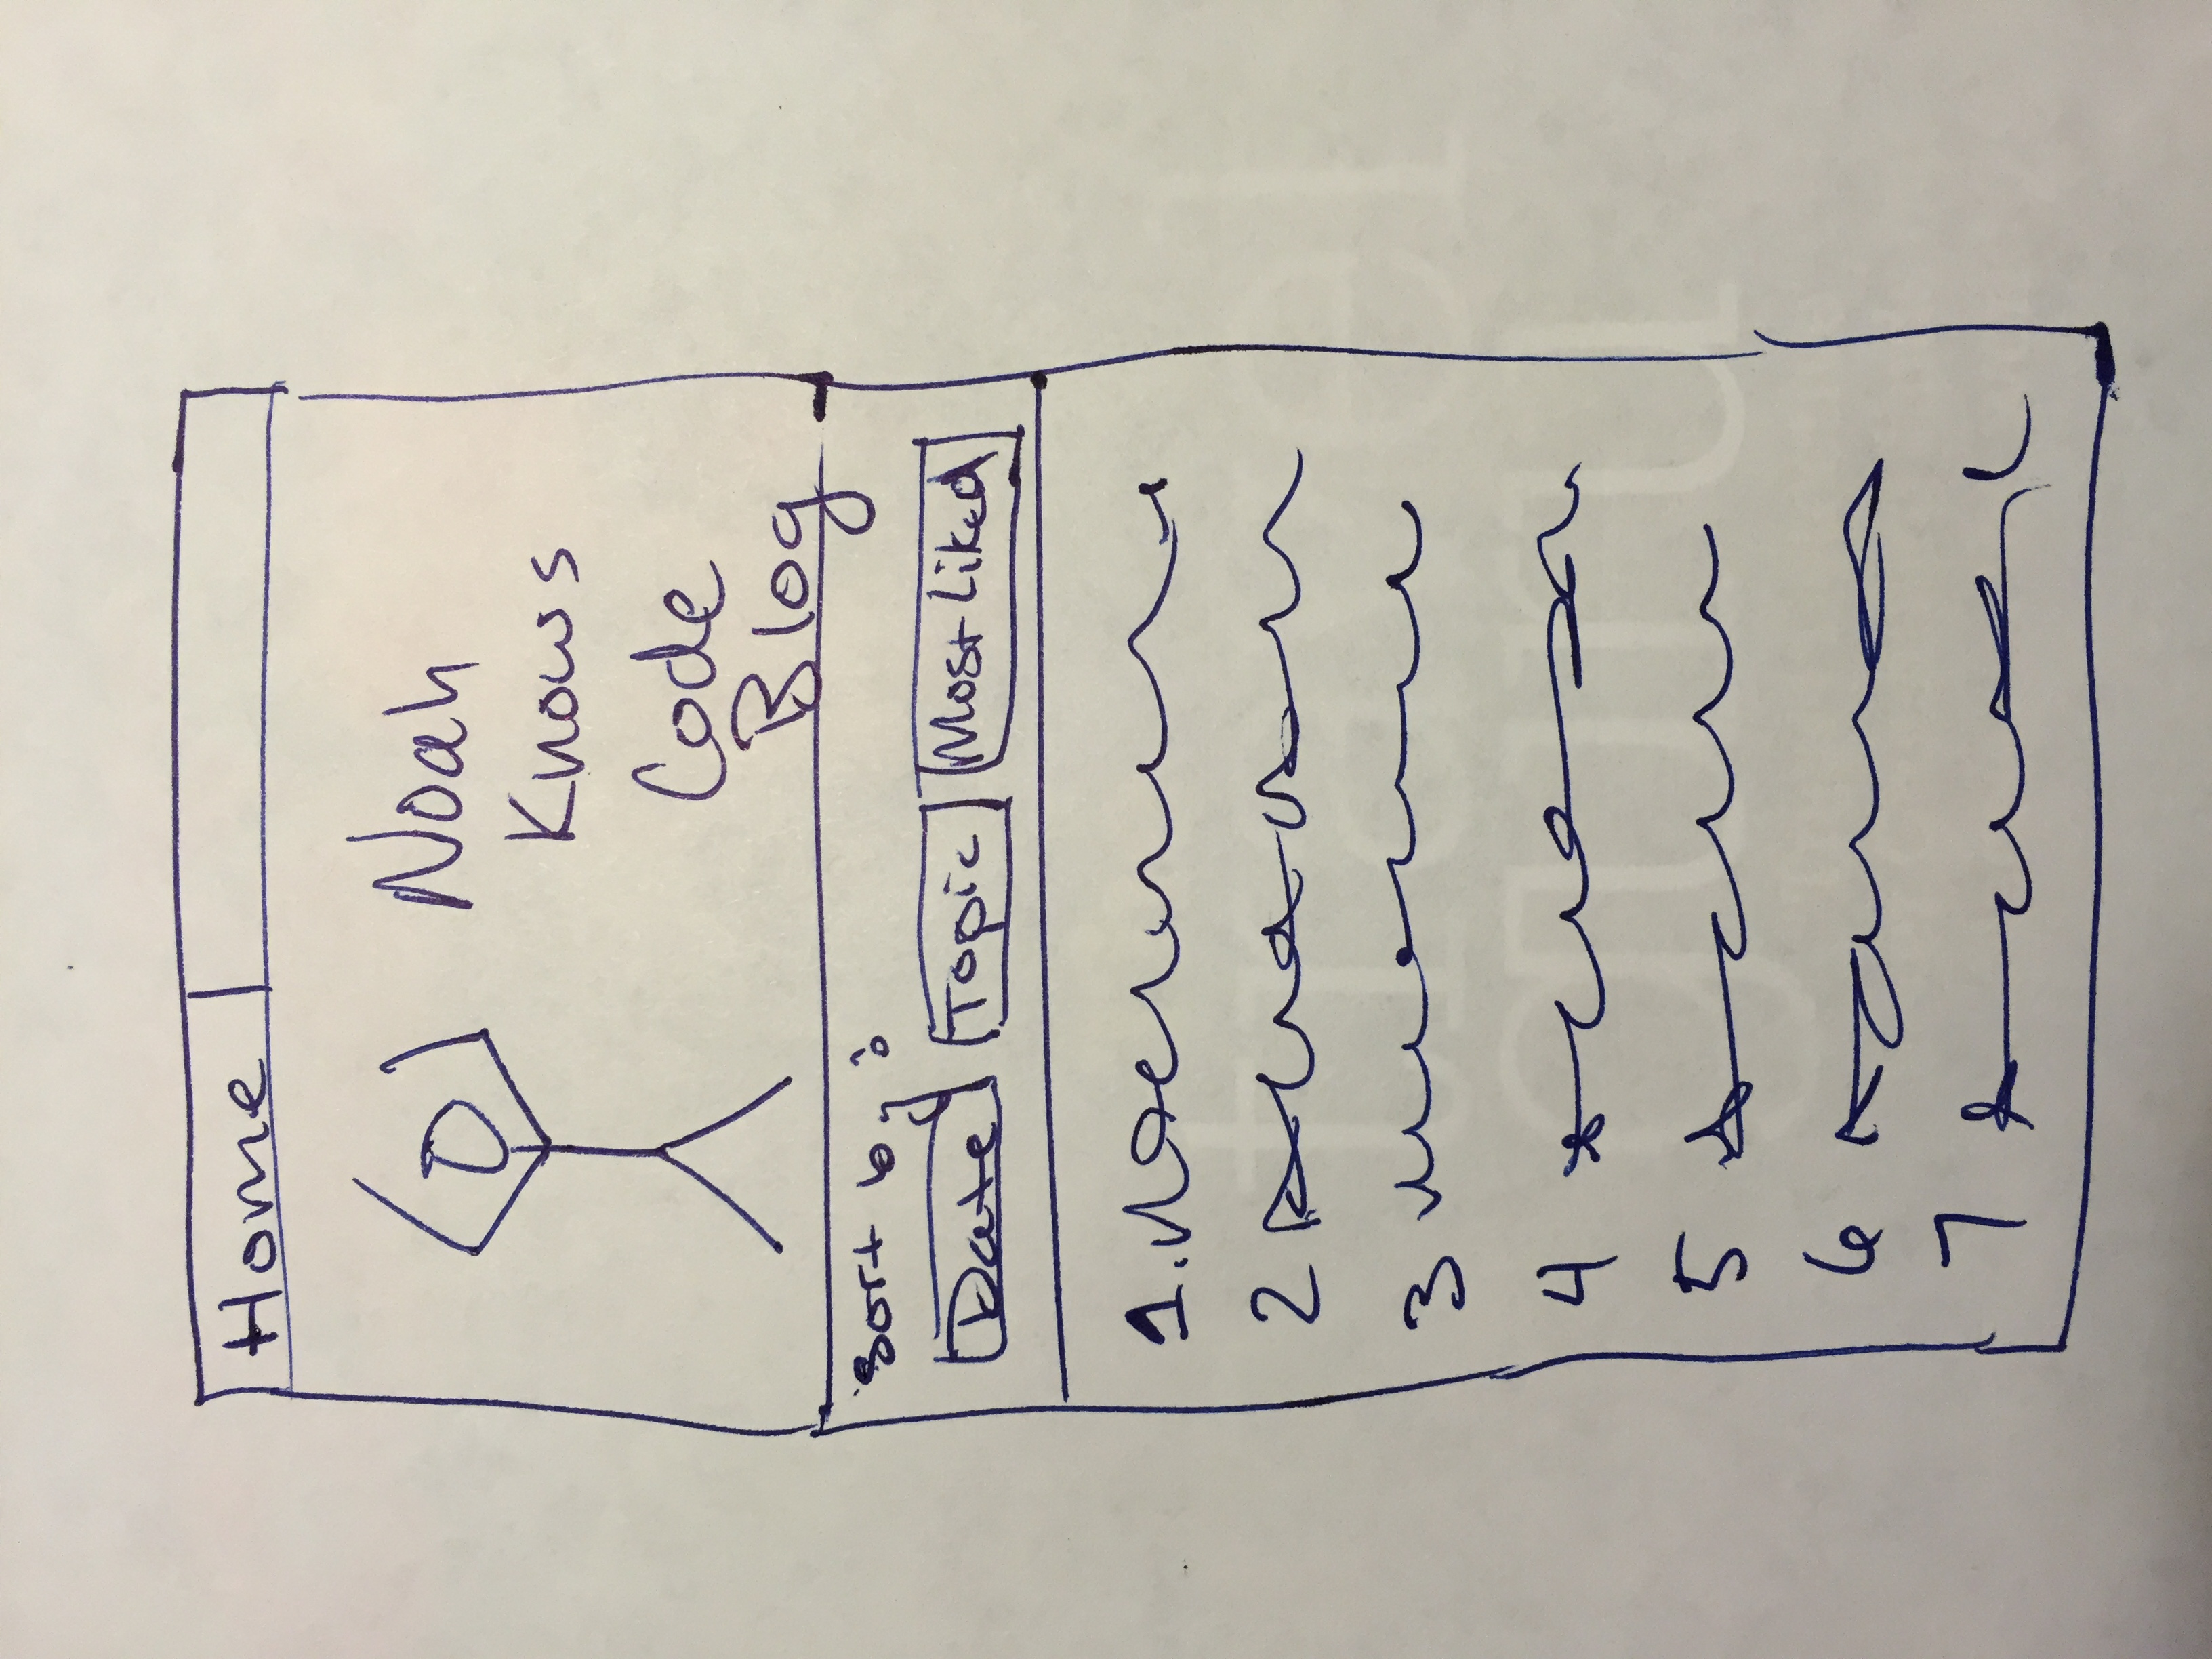 Home
Noah
Knows
Code
Blog
Sort by:
Date Topic Most Liked
1.
2
3
4
5
6
7
travel
guru